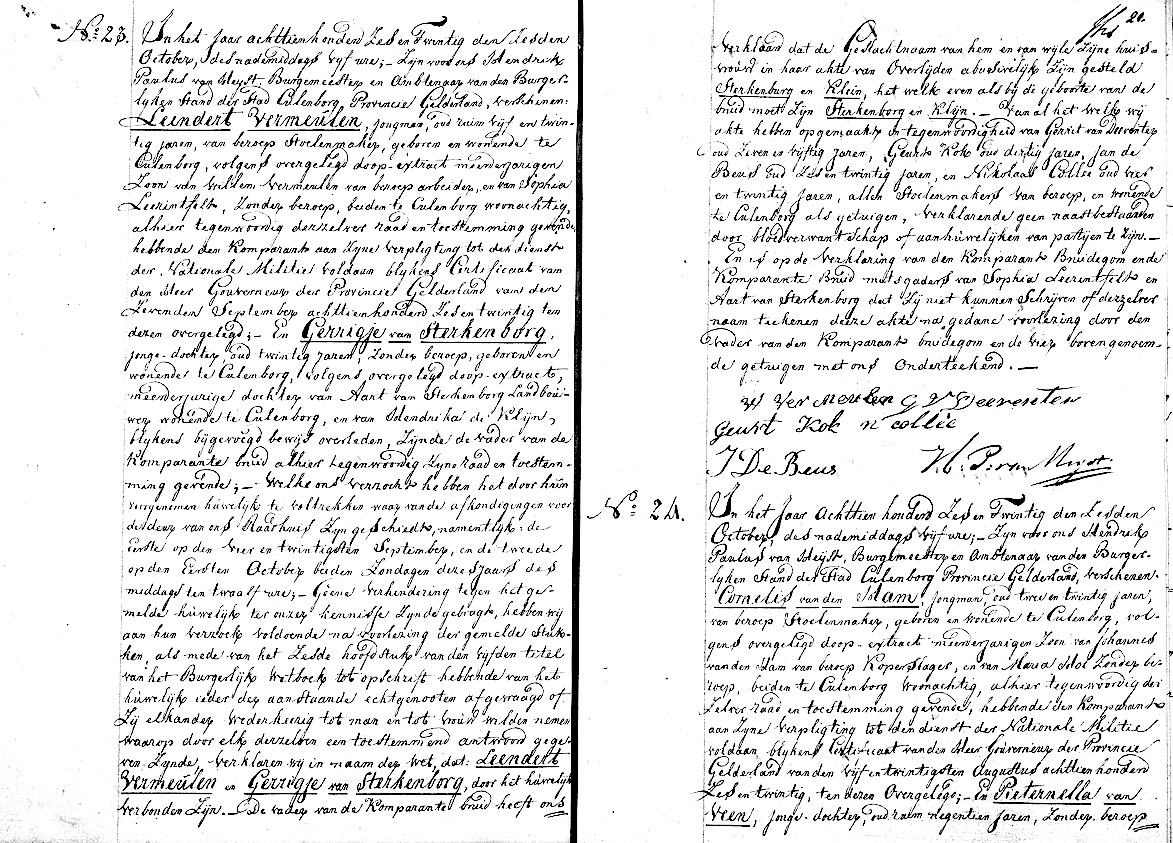 No. 23. In het jaar achttienhonderd Zes en Twintig den Zesden
October, des nademiddags vyf ure; - Zyn voor ons Hendrik
Paulus van Heyst, Burgemeester en Ambtenaar van den Burger-
lyken Stand der Stad Culenborg, Provincie Gelderland, verschenen:
Leendert Vermeulen, jongman, oud ruim vyf en twin-
tig jaren, van beroep Stoelenmaker, geboren en wonende te
Culenborg, volgens overgelegd doop-extract meerderjarigen
Zoon van Willem Vermeulen van beroep arbeider, en van Sophia
Leerintfelt, Zonder beroep, beiden te Culenborg woonachtig,
alhier tegenwoordig derzelver raad en toestemming gevende,
hebbende den Komparant aan Zyne verpligting tot den dienst
der Nationale Militie voldaan blykens Certificaat van
den Heer Gouverneur der Provincie Gelderland van den
Zevenden September achttienhonderd Zes en twintig ten
dezen overgelegd; - En Gerrigje van Sterkenborg,
jonge-dochter, oud twintig jaren, Zonder beroep, geboren en
wonende te Culenborg, volgens overgelegd doop-extract,
meerderjarige dochter van Aart van Sterkenborg Landbou-
wer wonende te Culenborg, en van Hendrika de Klijn,
blykens bygevoegd bewys overleden, Zynde de vader van de
Komparante bruid alhier tegenwoordig Zyne raad en toestem-
ming gevende; - Welke ons verzocht hebben het door hun
voorgenomen huwelyk te voltrekken waar van de afkondigingen voor
de deur van ons Raadhuis Zyn geschied, namentlyk: de
eerste op den vier en twintigsten September, en de tweede
op den Eersten October beiden Zondagen dezes Jaars des
middags ten twaalf ure; - Geene verhindering tegen het ge-
melde huwelyk ter onzer kennisse Zynde gebragt, hebben wy
aan hun verzoek voldoende na voorlezing der gemelde Stuk-
ken, als mede van het Zesde hoofdstuk van den vyfden titel
van het Burgerlyk Wetboek tot opschrift hebbende van het
huwelyk ieder der aanstaande echtgenooten afgevraagd of
Zy elkander wederkeerig tot man en tot vrouw wilden nemen
waarop door elk derzelven een toestemmend antwoord gege-
ven Zynde, verklaren wy in naam der Wet, dat: Leendert
Vermeulen en Gerrigje van Sterkenborg, door het huwelyk
verbonden Zyn. - De vader van de Komparante bruid heeft ons
20.
verklaard dat de Geslachtnaam van hem en van wyle Zyne huis-
vrouw in haar akte van Overlyden abusivelyk Zyn gesteld
Sterkenburg en Klein, het welk even als by de geboorte van de
bruid moet Zyn Sterkenborg en Klijn. - Van al het welk wy
akte hebben opgemaakt in tegenwoordigheid van Gerrit van Deeventer
oud Zeven en vyftig jaren, Geurt Kok oud dertig jaren, Jan de
Beus oud Zes en twintig jaren, en Nikolaas Collée oud vier
en twintig jaren, allen Stoelenmakers van beroep, en wonende
te Culenborg als getuigen, verklarende geen naastbestaanden
door bloedverwantschap of aanhuwelyken van partyen te Zyn. -
En is op de verklaring van den Komparant Bruidegom en de
Komparante Bruid mitsgaders van Sophia Leerintfelt en
Aart van Sterkenborg dat Zy niet kunnen Schryven of derzelver
naam teekenen deeze akte na gedane voorlezing door den
vader van den Komparant bruidegom en de vier bovengenoem-
de getuigen met ons Onderteekend. -
W Vermeulen G V Deeventer
Geurt Kok N Collée
J De Beus H. P. van Heyst
No. 24. In het Jaar Achttien honderd Zes en Twintig den Zesden
October, des nademiddags vyf ure; - Zyn voor ons Hendrik
Paulus van Heyst, Burgemeester en Ambtenaar van den Burger-
lyken Stand der Stad Culenborg Provincie Gelderland, verschenen:
Cornelis van den Ham, jongman, oud twee en twintig jaren,
van beroep Stoelenmaker, geboren en wonende te Culenborg, vol-
gens overgelegd doop-extract meerderjarigen Zoon van Johannes
van den Ham van beroep Koperslager, en van Maria Hol Zonder be-
roep, beiden te Culenborg woonachtig, alhier tegenwoordig der
Zelver raad en toestemming gevende, hebbende den Komparant
aan Zyne verpligting tot den dienst der Nationale Militie
voldaan, blykens Certificaat van den Heer Gouverneur der Provincie
Gelderland van den vyf en twintigsten Augustus achttien honderd
Zes en twintig, ten dezen Overgelegd; - En Pieternella van
Veen, jonge-dochter, oud ruim negentien jaren, Zonder beroep